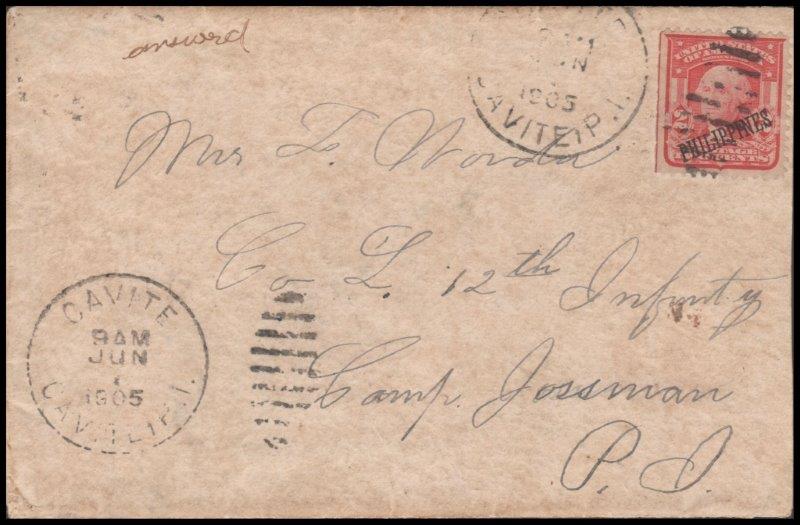 answord
AM
JUN
1
1905
CAVITE, P.I.
UNITED STATES
OF AMERICA
PHILIPPINES
CENTS
Mrs F. Words
Co L 12th Infinty
Camp Jossman
P. I.
CAVITE
9AM
JUN
1
1905
CAVITE, P.I.